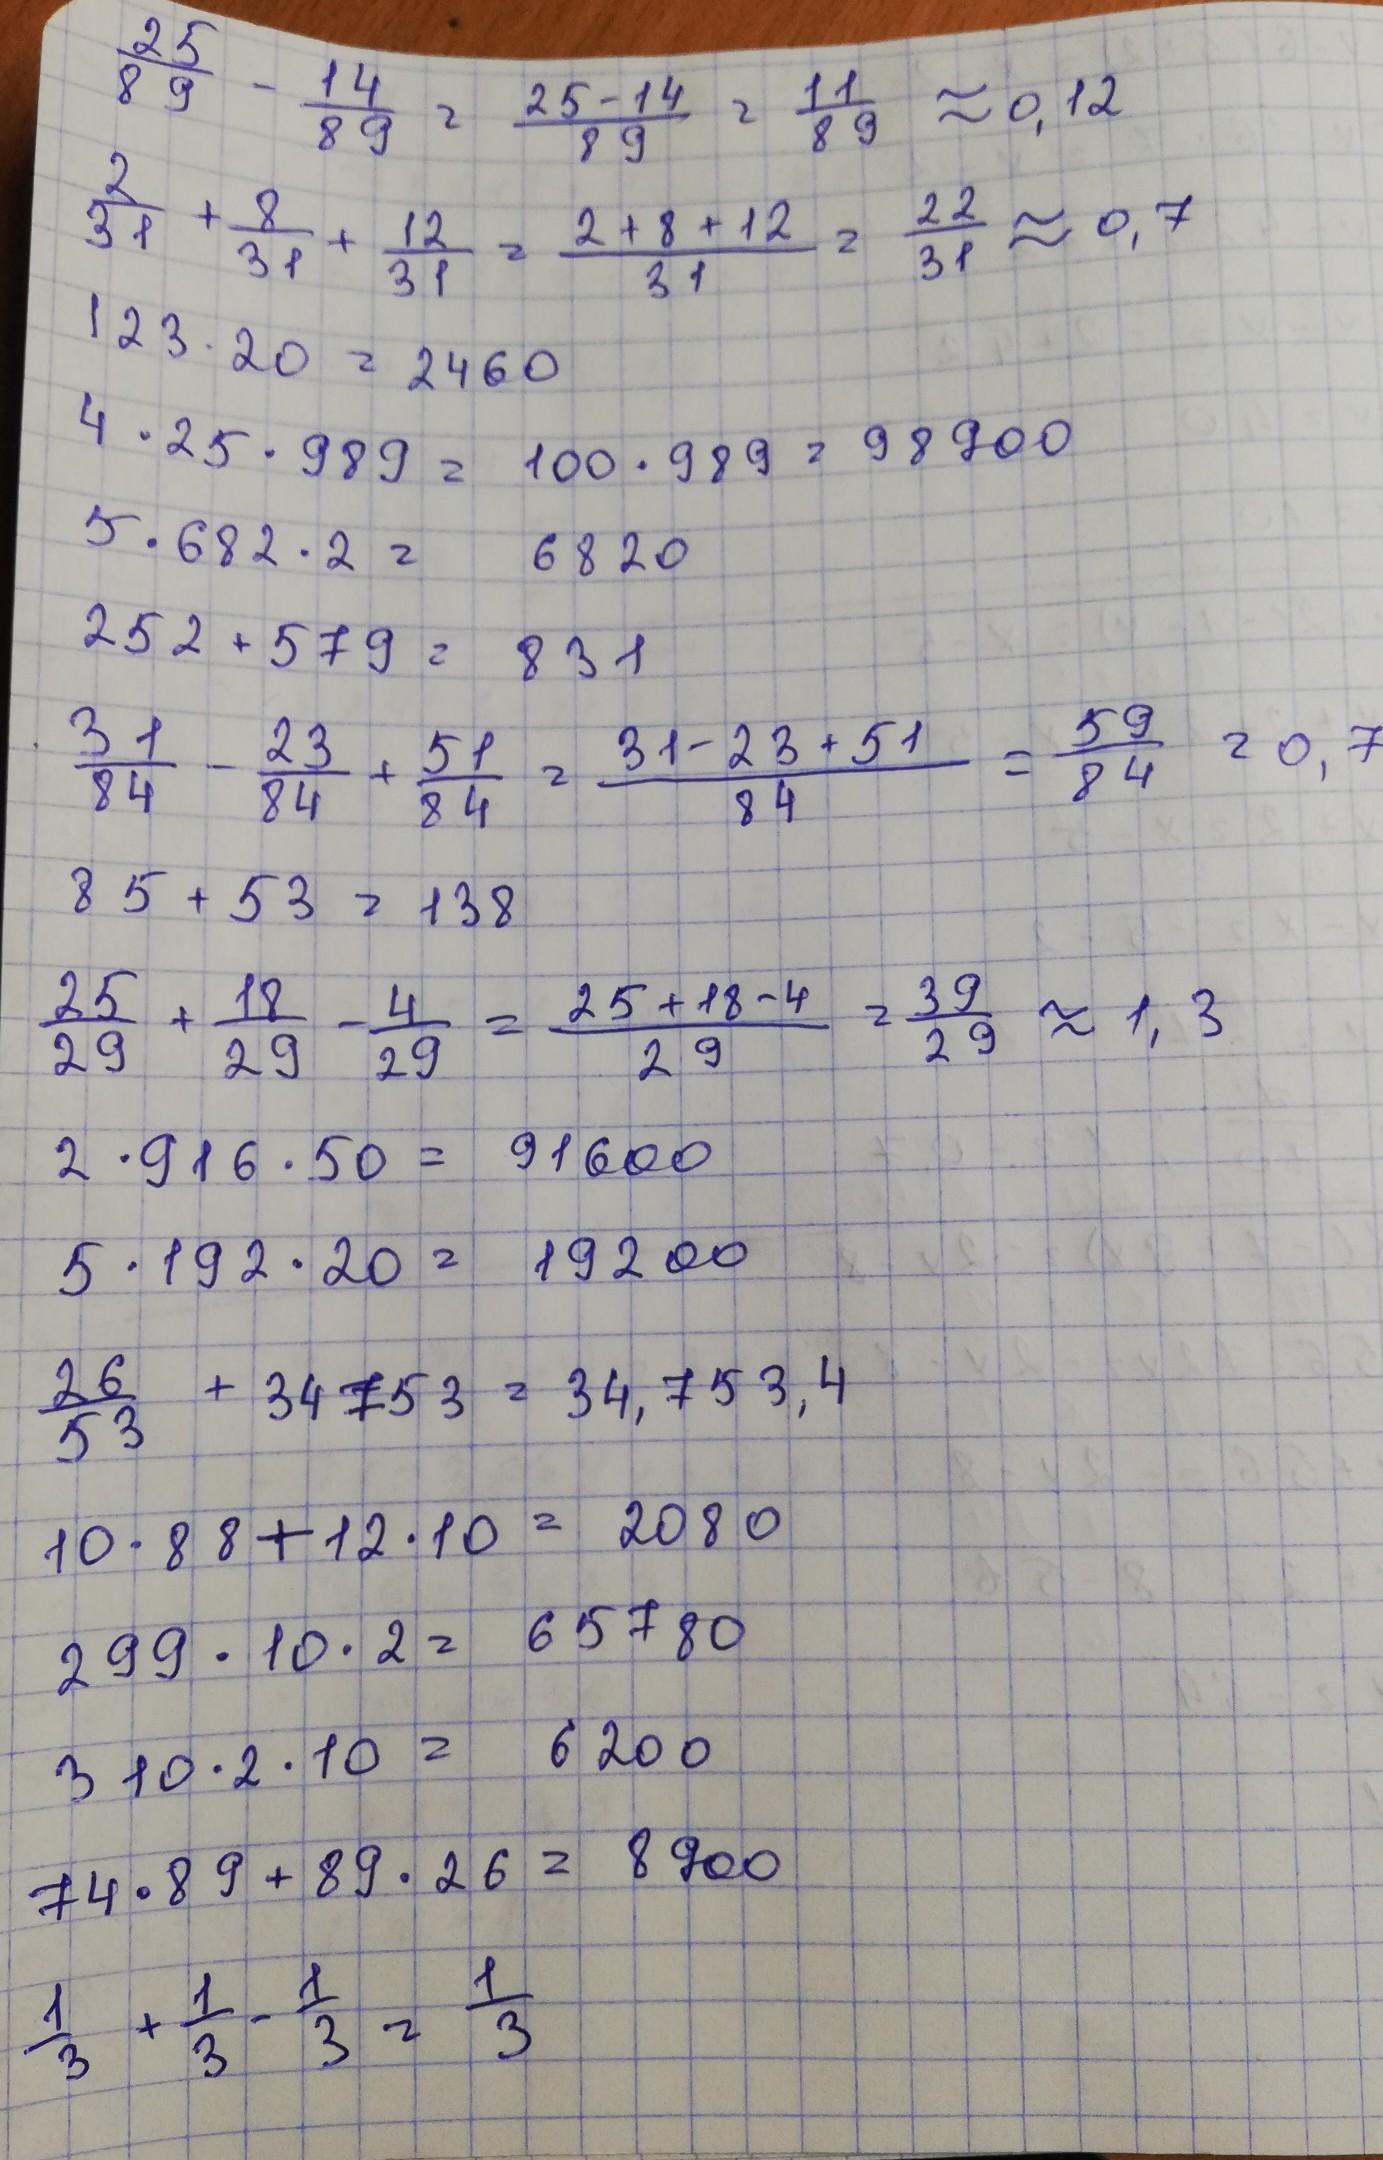 25/89 - 14/89 = 25-14/89 = 11/89 ≈ 0,12
2/31 + 8/31 + 12/31 = 2+8+12/31 = 22/31 ≈ 0,7
123·20 = 2460
4·25·989 = 100·989 = 98900
5·682·2 = 6820
252+579 = 831
31/84 - 23/84 + 51/84 = 31-23+51/84 = 59/84 = 0,7
85+53 = 138
25/29 + 18/29 - 4/29 = 25+18-4/29 = 39/29 ≈ 1,3
2·916·50 = 91600
5·192·20 = 19200
26/53 + 34753 = 34,753,4
10·88+12·10 = 2080
299·10·2 = 65780
310·2·10 = 6200
74·89+89·26 = 8900
1/3 + 1/3 - 1/3 = 1/3